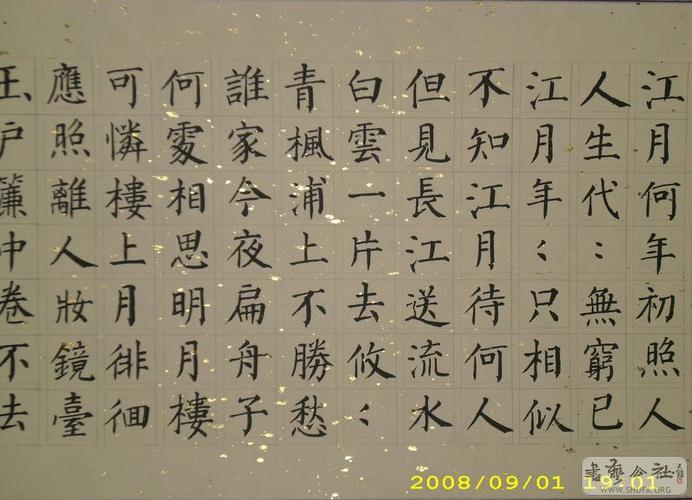 江月何年初照人
人生代〻無窮已
江月年〻只相似
不知江月待何人
但見長江送流水
白雲一片去攸〻
青楓浦上不勝愁
誰家今夜扁舟子
何處相思明月樓
可憐樓上月徘徊
應照離人妝鏡臺
玉戶簾中卷不去
2008/09/01 19:01
書藝公社
WWW.SHUFA.ORG